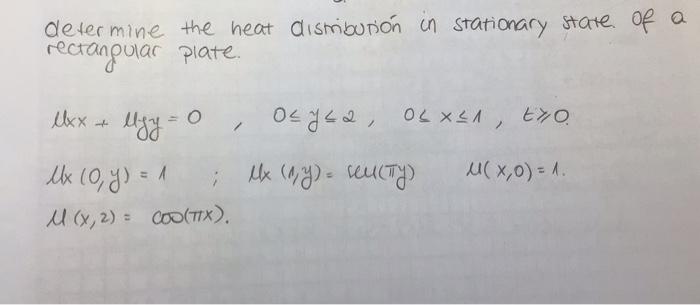 determine the heat distribution in stationary state of a
rectangular plate.
Uxx + Uyy = 0 , 0 ≤ y ≤ 2 , 0 ≤ x ≤ 1 , t ≥ 0.
Ux (0,y) = 1 ; Ux (1,y) = sen(πy) U(x,0) = 1.
U (x,2) = cos(πx).